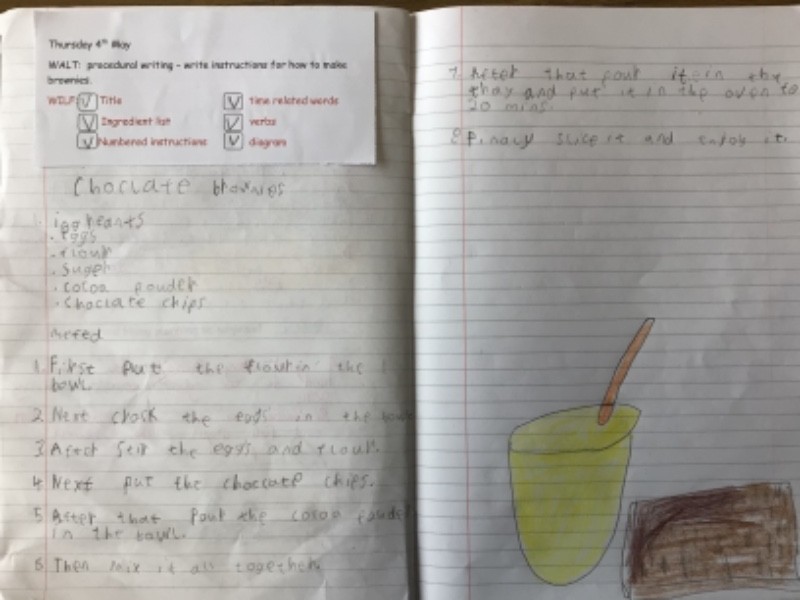 Thursday 4th May
WALT: procedural writing - write instructions for how to make
brownies.
WILF: Title
time related words
Ingredient list
verbs
Numbered instructions
diagram
Choclate brownies
eggs
flour
suger
cocoa powder
choclate chips
1. First put the flour in the
bowl.
2. Next crack the eggs in the bowl
3. After stir the eggs and flour.
4. Next put the choclate chips.
5. After that pour the cocoa powder
in the bowl.
6. Then mix it all together.
7. After that pour it in the
thay and put it in the oven to
20 mins.
8. Finaly slice it and enjoy it.